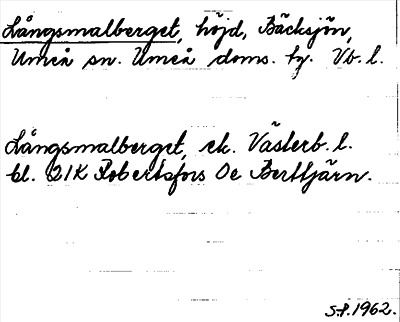 Långsmalberget, höjd, Bäcksjön,
Umeå sn. Umeå doms. tg. Vb. l.
Långsmalberget, ek. Västerb. l.
bl. 21K Robertsfors Oe Berttjärn.
S-P. 1962.